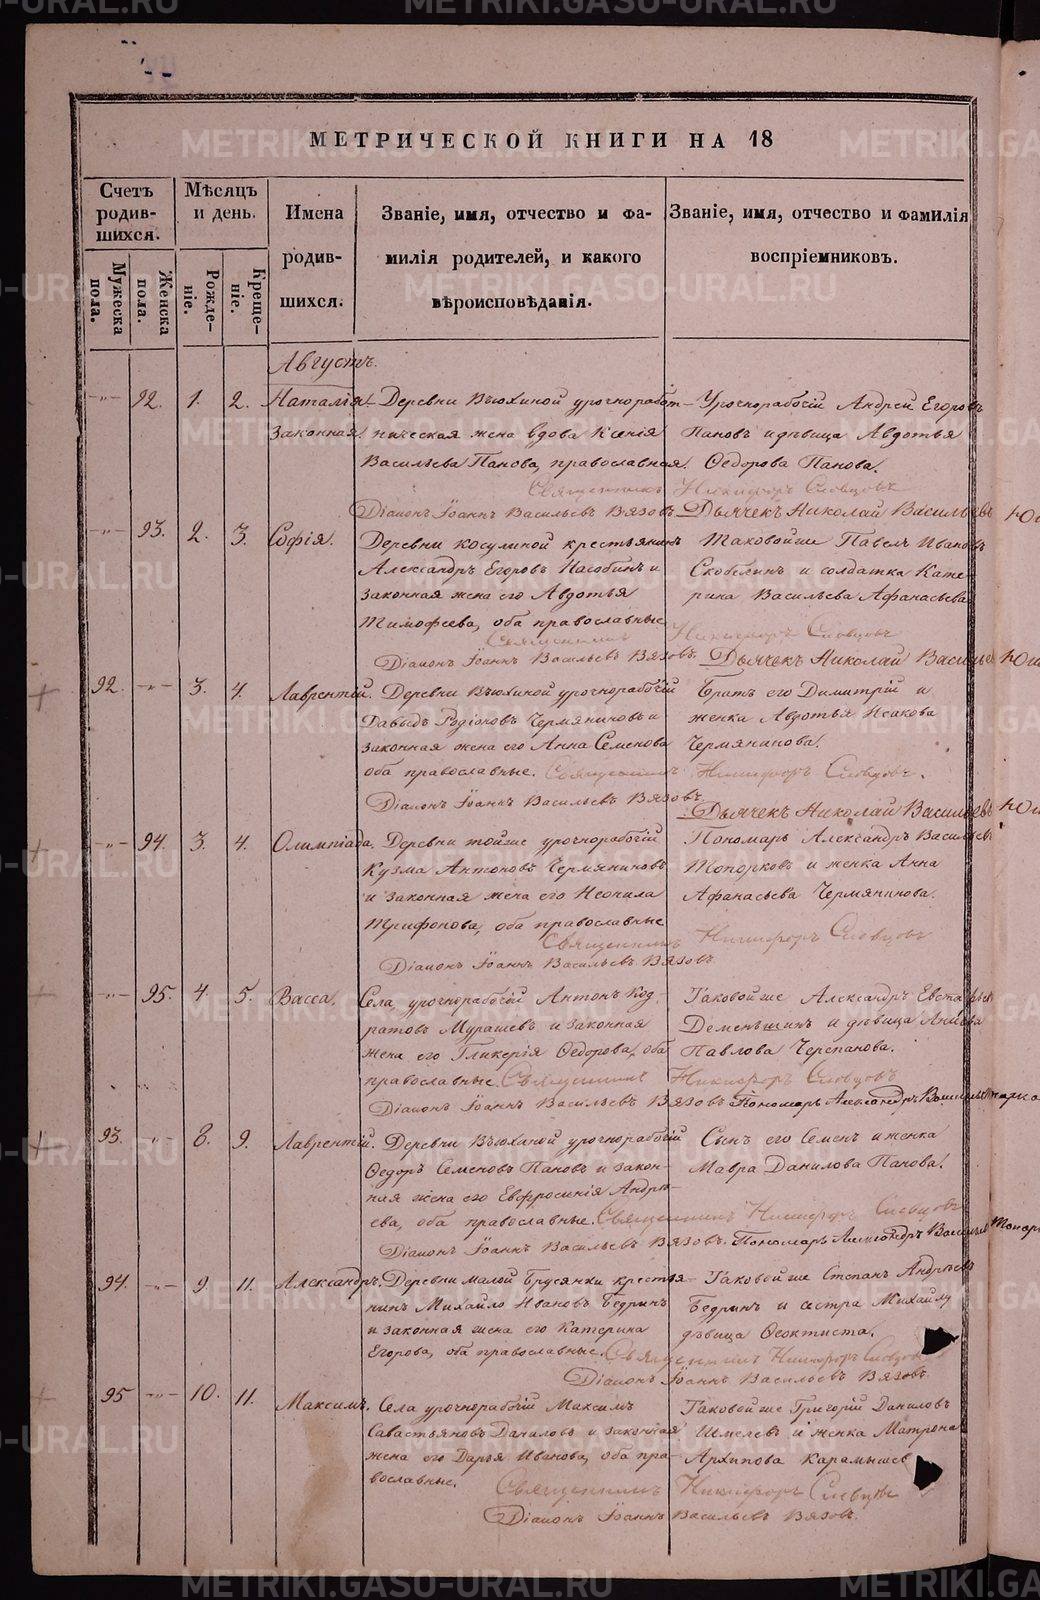 МЕТРИЧЕСКОЙ КНИГИ НА 18
Счетъ родив-шихся.
Мѣсяцъ и день.
Имена родив-шихся.
Званіе, имя, отчество и фа-
милія родителей, и какого
вѣроисповѣданія.
Званіе, имя, отчество и фамилія
воспріемниковъ.
Мужеска пола.
Женска пола.
Рожде-ніе.
Креще-ніе.
Августъ.
-"- 92. 1. 2. Наталія Деревни Вьюхиной урочноработ- Урочнорабочій Андрей Егоровъ
законная. ническая жена вдова Ксенія Пановъ и дѣвица Авдотья
Васильева Панова, православная. Ѳедорова Панова.
Священникъ Никифоръ Словцовъ
Діаконъ Іоаннъ Васильевъ Вязовъ. Дьячекъ Николай Васильевъ
-"- 93. 2. 3. Софія. Деревни Косулиной крестьянинъ Таковой же Павелъ Ивановъ
Александръ Егоровъ и Скобелинъ и солдатка Кате-
законная жена его Авдотья рина Васильева Афанасьева
Тимофеева, оба православные
Священникъ Никифоръ Словцовъ
Діаконъ Іоаннъ Васильевъ Вязовъ. Дьячекъ Николай
92. -"- 3. 4. Лаврентій. Деревни Вьюхиной урочнорабочій Братъ его Димитрій и
Давыдъ Родіоновъ Чермяниновъ и женка Авдотья Исакова
законная жена его Анна Семенова Чермянинова.
оба православные. Священникъ Никифоръ Словцовъ.
Діаконъ Іоаннъ Васильевъ Вязовъ
Дьячекъ Николай Васильевъ
-"- 94. 3. 4. Олимпіада. Деревни тойже урочнорабочій Пономарь Александръ Васильевъ
Кузма Антоновъ Чермяниновъ Топорковъ и женка Анна
и законная жена его Неонила Афанасьева Чермянинова.
Трифонова, оба православные
Священникъ Никифоръ Словцовъ
Діаконъ Іоаннъ Васильевъ Вязовъ
-"- 95. 4. 5. Васса. Села урочнорабочій Антонъ Код- Таковой же Александръ
ратовъ Мурашевъ и законная Деменьшинъ и дѣвица
жена его Гликерія Ѳедорова, оба Павлова Черепанова.
православные. Священникъ Никифоръ Словцовъ
Діаконъ Іоаннъ Васильевъ Вязовъ Пономарь Александръ
93. " 8. 9. Лаврентій. Деревни Вьюхиной урочнорабочій Сынъ его Семенъ и женка
Ѳедоръ Семеновъ Пановъ и закон- Мавра Данилова Панова.
ная жена его Евфросинія Андре-
ева, оба православные. Священникъ Никифоръ Словцовъ
Діаконъ Іоаннъ Васильевъ Вязовъ. Пономарь Александръ
94. -"- 9. 11. Александръ. Деревни малой Брусянки крестья- Таковой же Степанъ Андреевъ
нинъ Михайло Ивановъ Бедринъ Бедринъ и сестра Михайлу
и законная жена его Катерина дѣвица Ѳеоктиста.
Егорова, оба православные. Священникъ Никифоръ Словцовъ
Діаконъ Іоаннъ Васильевъ Вязовъ.
95 -"- 10. 11. Максимъ. Села урочнорабочій Максимъ Таковой же Григорій Даниловъ
Савастьяновъ Даниловъ и законная Шмелевъ и женка Матрона
жена его Дарья Иванова, оба пра- Архипова
вославные.
Священникъ Никифоръ Словцовъ
Діаконъ Іоаннъ Васильевъ Вязовъ.
METRIKI.GASO-URAL.RU